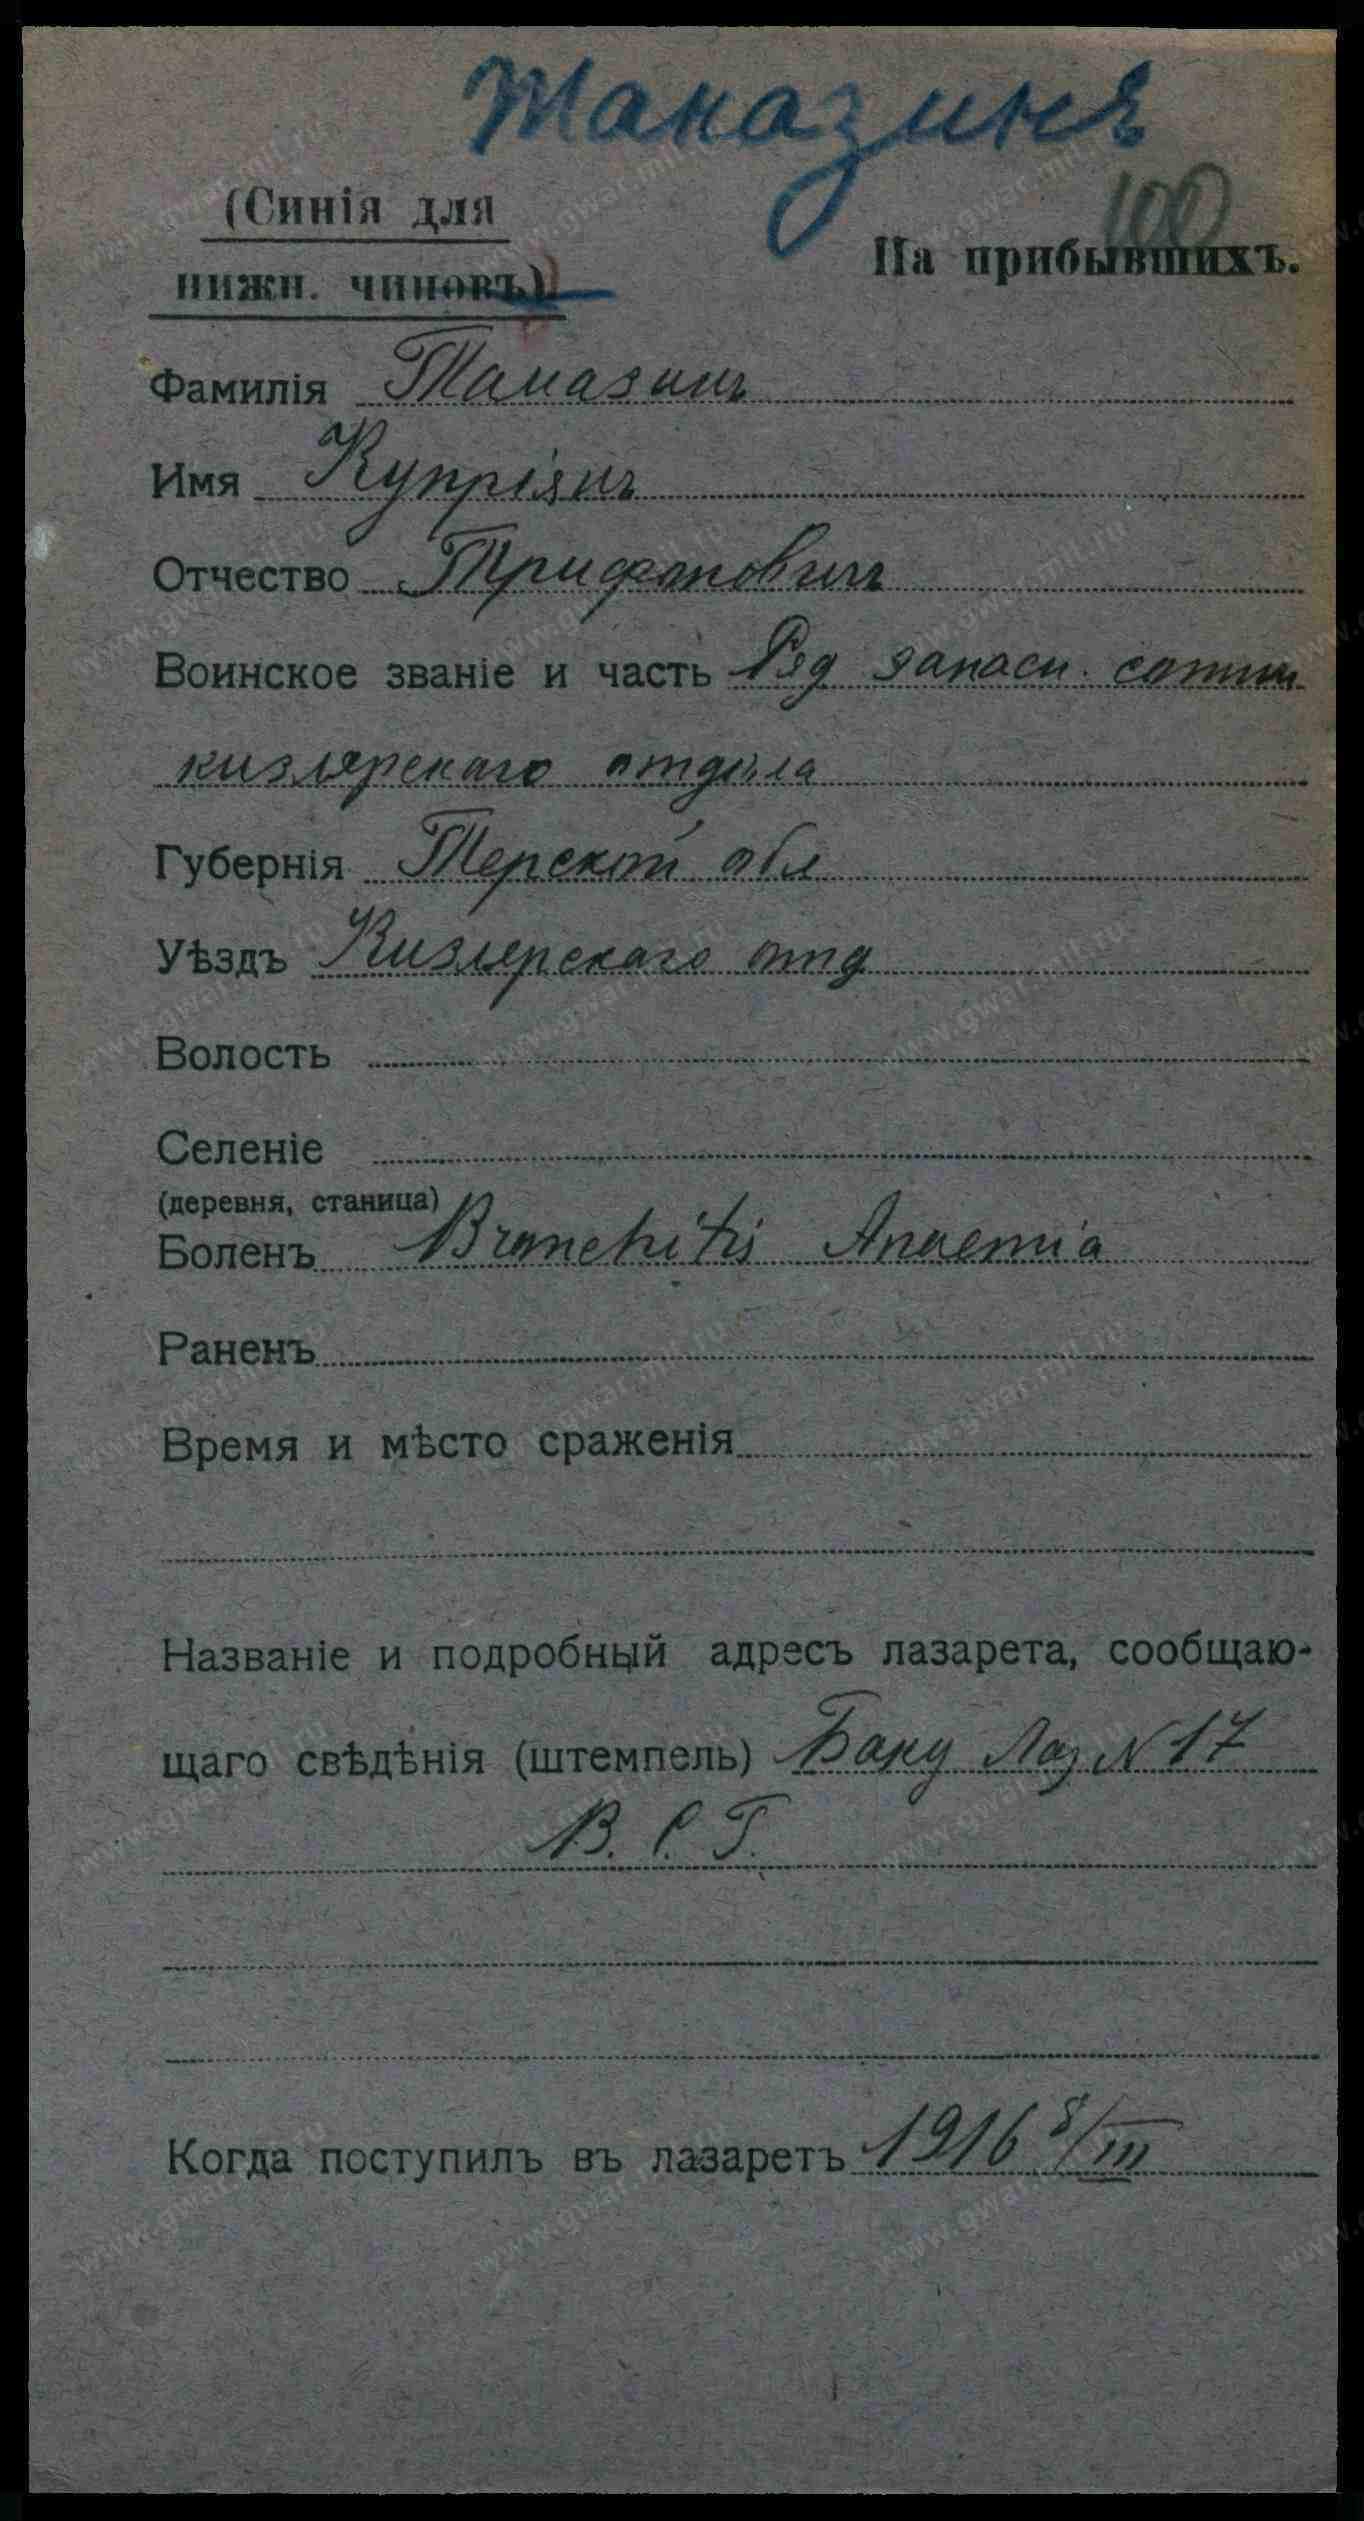 Таназинъ
100
(Синія для
нижн. чиновъ)
На прибывшихъ.
Фамилія Таназинъ
Имя Купріянъ
Отчество Трифоновичъ
Воинское званіе и часть Ряд запасн. сотни
кизлярскаго отдѣла
Губернія Терской обл
Уѣздъ Кизлярскаго отд
Волость
Селеніе
(деревня, станица)
Боленъ Bronchitis Anaemia
Раненъ
Время и мѣсто сраженія
Названіе и подробный адресъ лазарета, сообщаю-
щаго свѣдѣнія (штемпель) Баку Лаз N 17
В. С. Г.
Когда поступилъ въ лазаретъ 1916 8/III
www.gwar.mil.ru